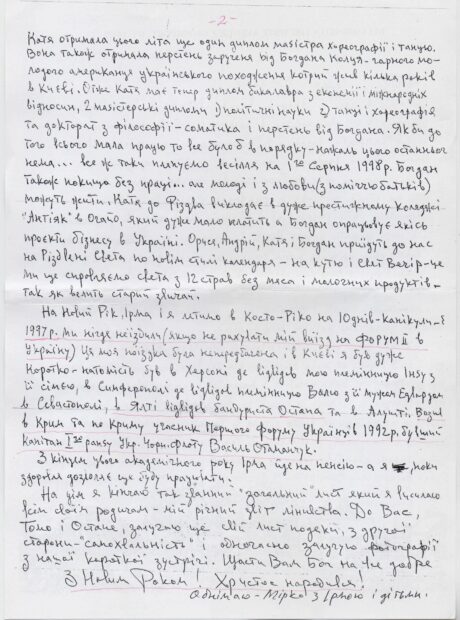 -2-
Катя отримала цього літа ще один диплом магістра хореографії і танцю.
Вона також отримала перстень заручена від Богдана - гарного мо-
лодого американця українського походження котрий жив кілька років
в Києві. Отже Катя має тепер диплом бакалавра з економії і міжнародних
відносин, 2 магістерські дипломи 1) політичні науки 2) танці і хореографія
та докторат з філософії - соматика і перстень від Богдана. Як би до
того всього мала працю то все було б в порядку - нажаль цього останнього
нема... все ж таки плянуємо весілля на 1го Серпня 1998р. Богдан
також покищо без праці... але молоді і з любови (з помічю батьків)
можуть жити. Катя до Різдва викладає в дуже престижному коледжі
"Антіяк" в Огайо, який дуже мало платить а Богдан опрацьовує якісь
проекти бізнесу в Україні. Орися, Андрій, Катя і Богдан приїдуть до нас
на Різдвяні Свята по новім стилі календаря - на кутю і Свят Вечір - це
ми ще справляємо свята з 12 страв без мяса і молочних продуктів -
так як велить старий звичай.
На Новий Рік, Ірма і я летимо в Косто-Ріко на 10 днів - канікули - в
1997р. ми нігде не їздили (якщо не рахувати мій виїзд на Форум II в
Україну) Ця моя поїздка була непередбачена, і в Києві я був дуже
коротко - натомість був в Херсоні де відвідав мою племінницю Інну з
її сімєю, в Симферополі де відвідав племінницю Валю з її мужем Едвардом
в Севастополі, в Ялті відвідав бандуриста Остапа та в Алушті. Возив
в Крим та по Криму учасник Першого Форуму Українців 1992р. бувший
капітан Iго рангу Укр. Чорн. флоту Василь
З кінцем цього академічного року Ірма йде на пенсію - а я поки
здоровля дозволяє ще буду працювати.
На дім я кінчаю так званий "загальний" лист який я висилаю
всім своїм родичам - мій річний звіт лінивства. До Вас,
Толю і Остапе, залучаю ще свій лист подяки, з другої
сторони - "самохвальність" і одночасно залучую фотографії
з нашої короткої зустрічі. Щасти Вам Бог на все добре
З Новим Роком! Христос народився!
Обнімаю - Мірко з Ірмою і дітьми.